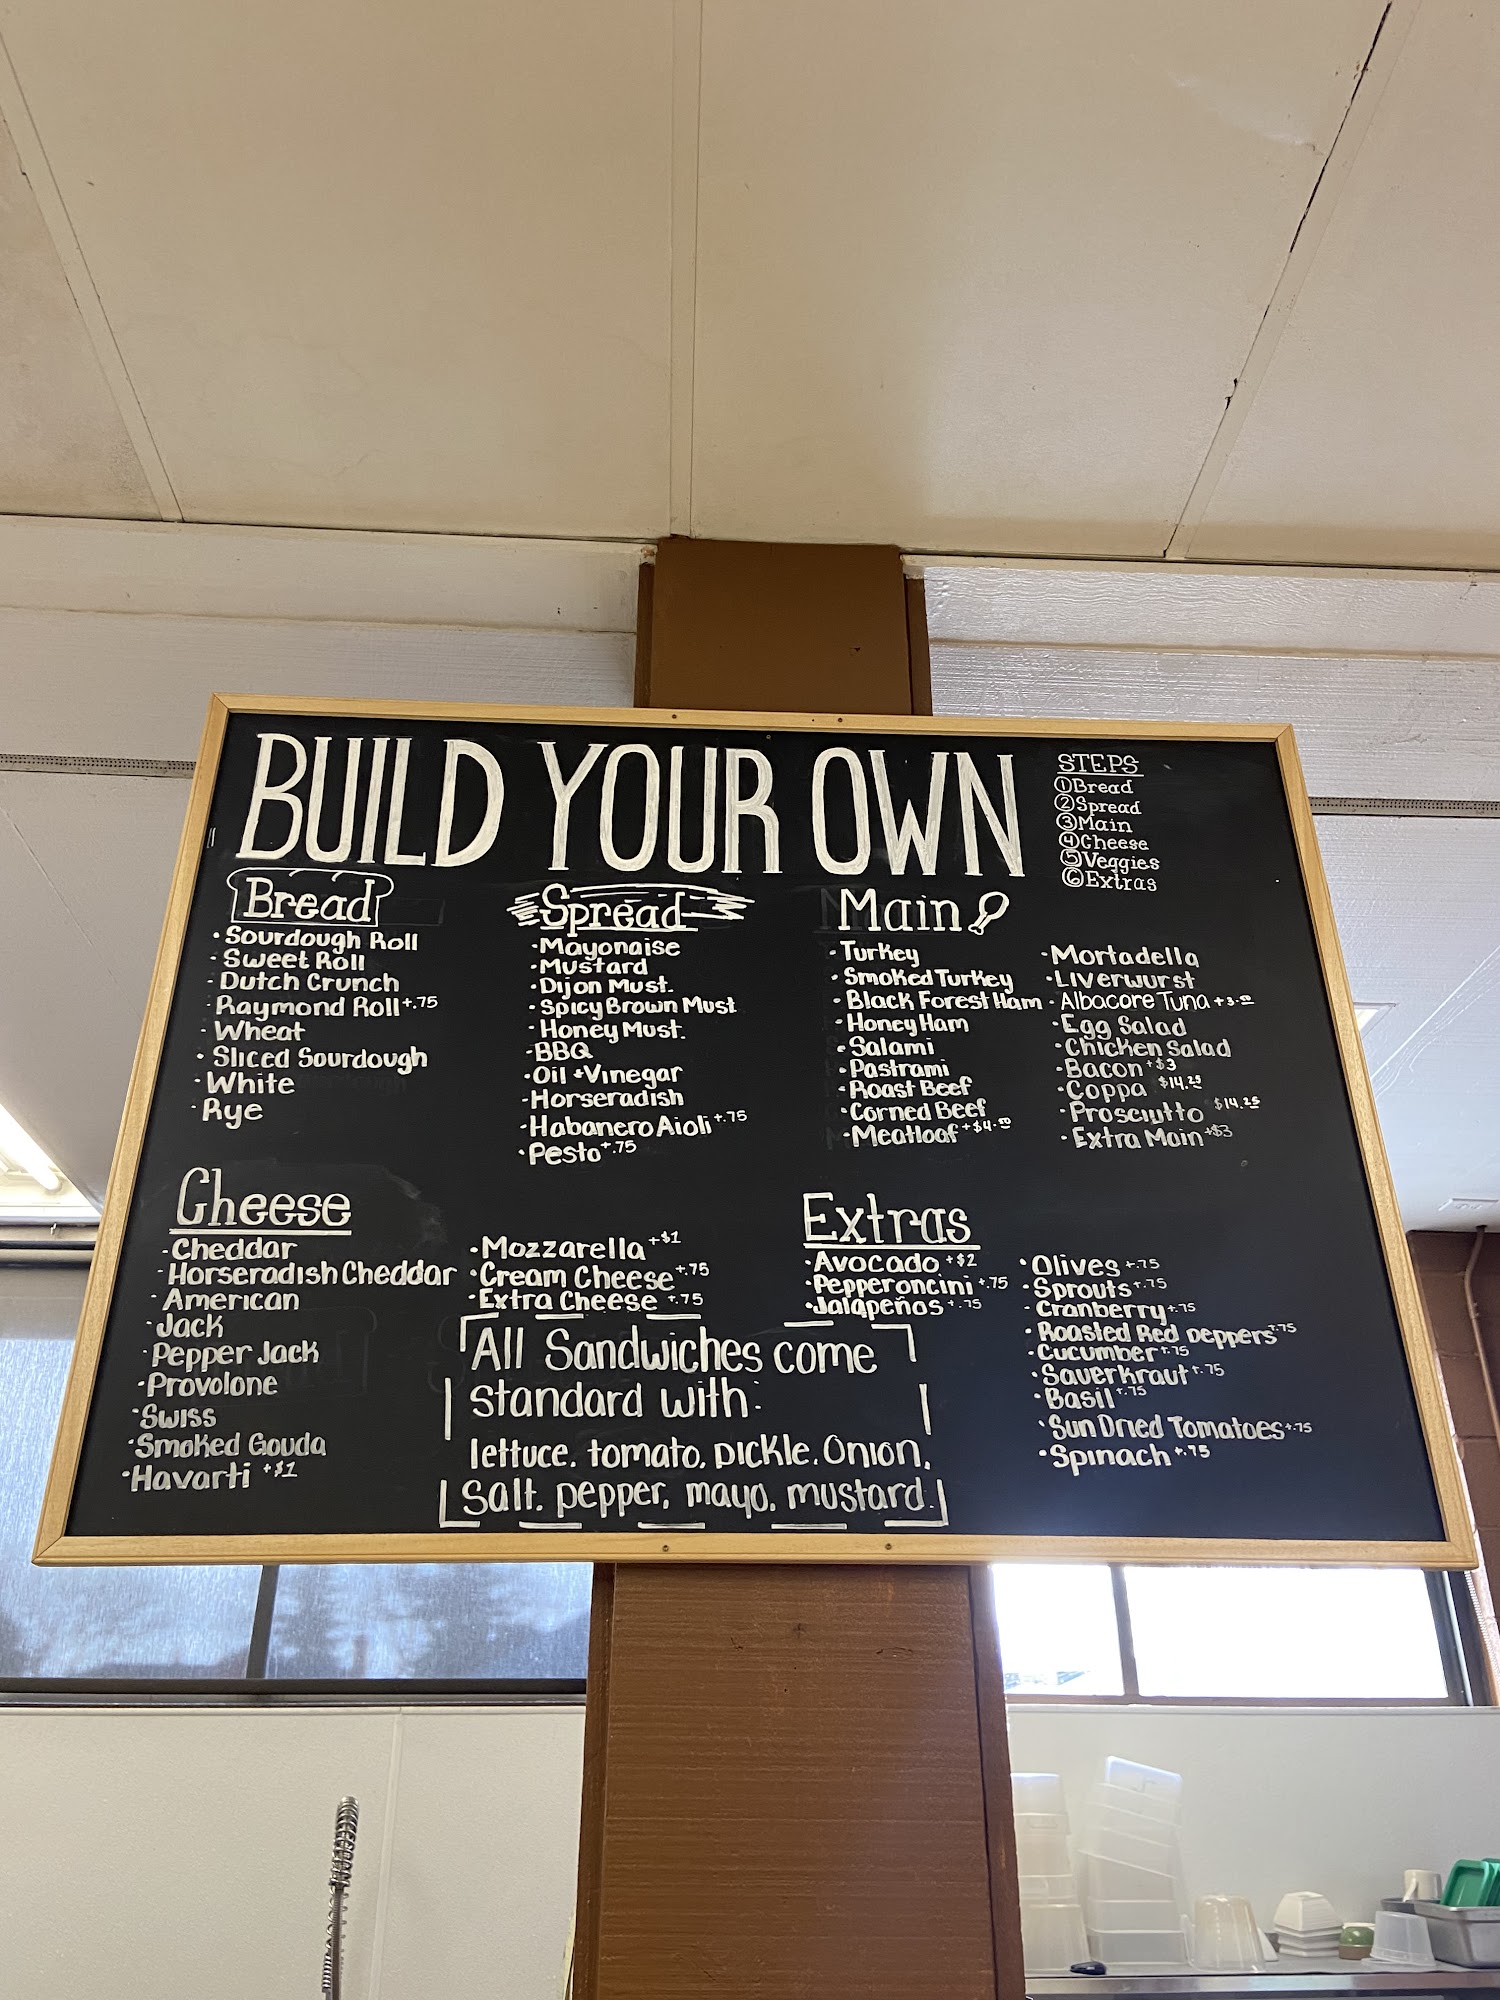 BUILD YOUR OWN
STEPS
①Bread
②Spread
③Main
④Cheese
⑤Veggies
⑥Extras
Bread
·Sourdough Roll
·Sweet Roll
·Dutch Crunch
·Raymond Roll +.75
·Wheat
·Sliced Sourdough
·White
·Rye
Spread
·Mayonaise
·Mustard
·Dijon Must.
·Spicy Brown Must
·Honey Must.
·BBQ
·Oil +Vinegar
·Horseradish
·Habanero Aioli +.75
·Pesto +.75
Main
·Turkey
·Smoked Turkey
·Black Forest Ham
·Honey Ham
·Salami
·Pastrami
·Roast Beef
·Corned Beef
·Meatloaf +$4.50
·Mortadella
·Liverwurst
·Albacore Tuna +3.50
·Egg Salad
·Chicken Salad
·Bacon +$3
·Coppa $14.25
·Prosciutto $14.25
·Extra Main +$3
Cheese
·Cheddar
·Horseradish Cheddar
·American
·Jack
·Pepper Jack
·Provolone
·Swiss
·Smoked Gouda
·Havarti +$1
·Mozzarella +$1
·Cream Cheese +.75
·Extra Cheese +.75
All Sandwiches come
standard with:
lettuce, tomato, pickle, Onion,
Salt, pepper, mayo, mustard.
Extras
·Avocado +$2
·Pepperoncini +.75
·Jalapeños +.75
·Olives +.75
·Sprouts +.75
·Cranberry +.75
·Roasted Red Peppers +.75
·Cucumber +.75
·Sauerkraut +.75
·Basil +.75
·Sun Dried Tomatoes +.75
·Spinach +.75